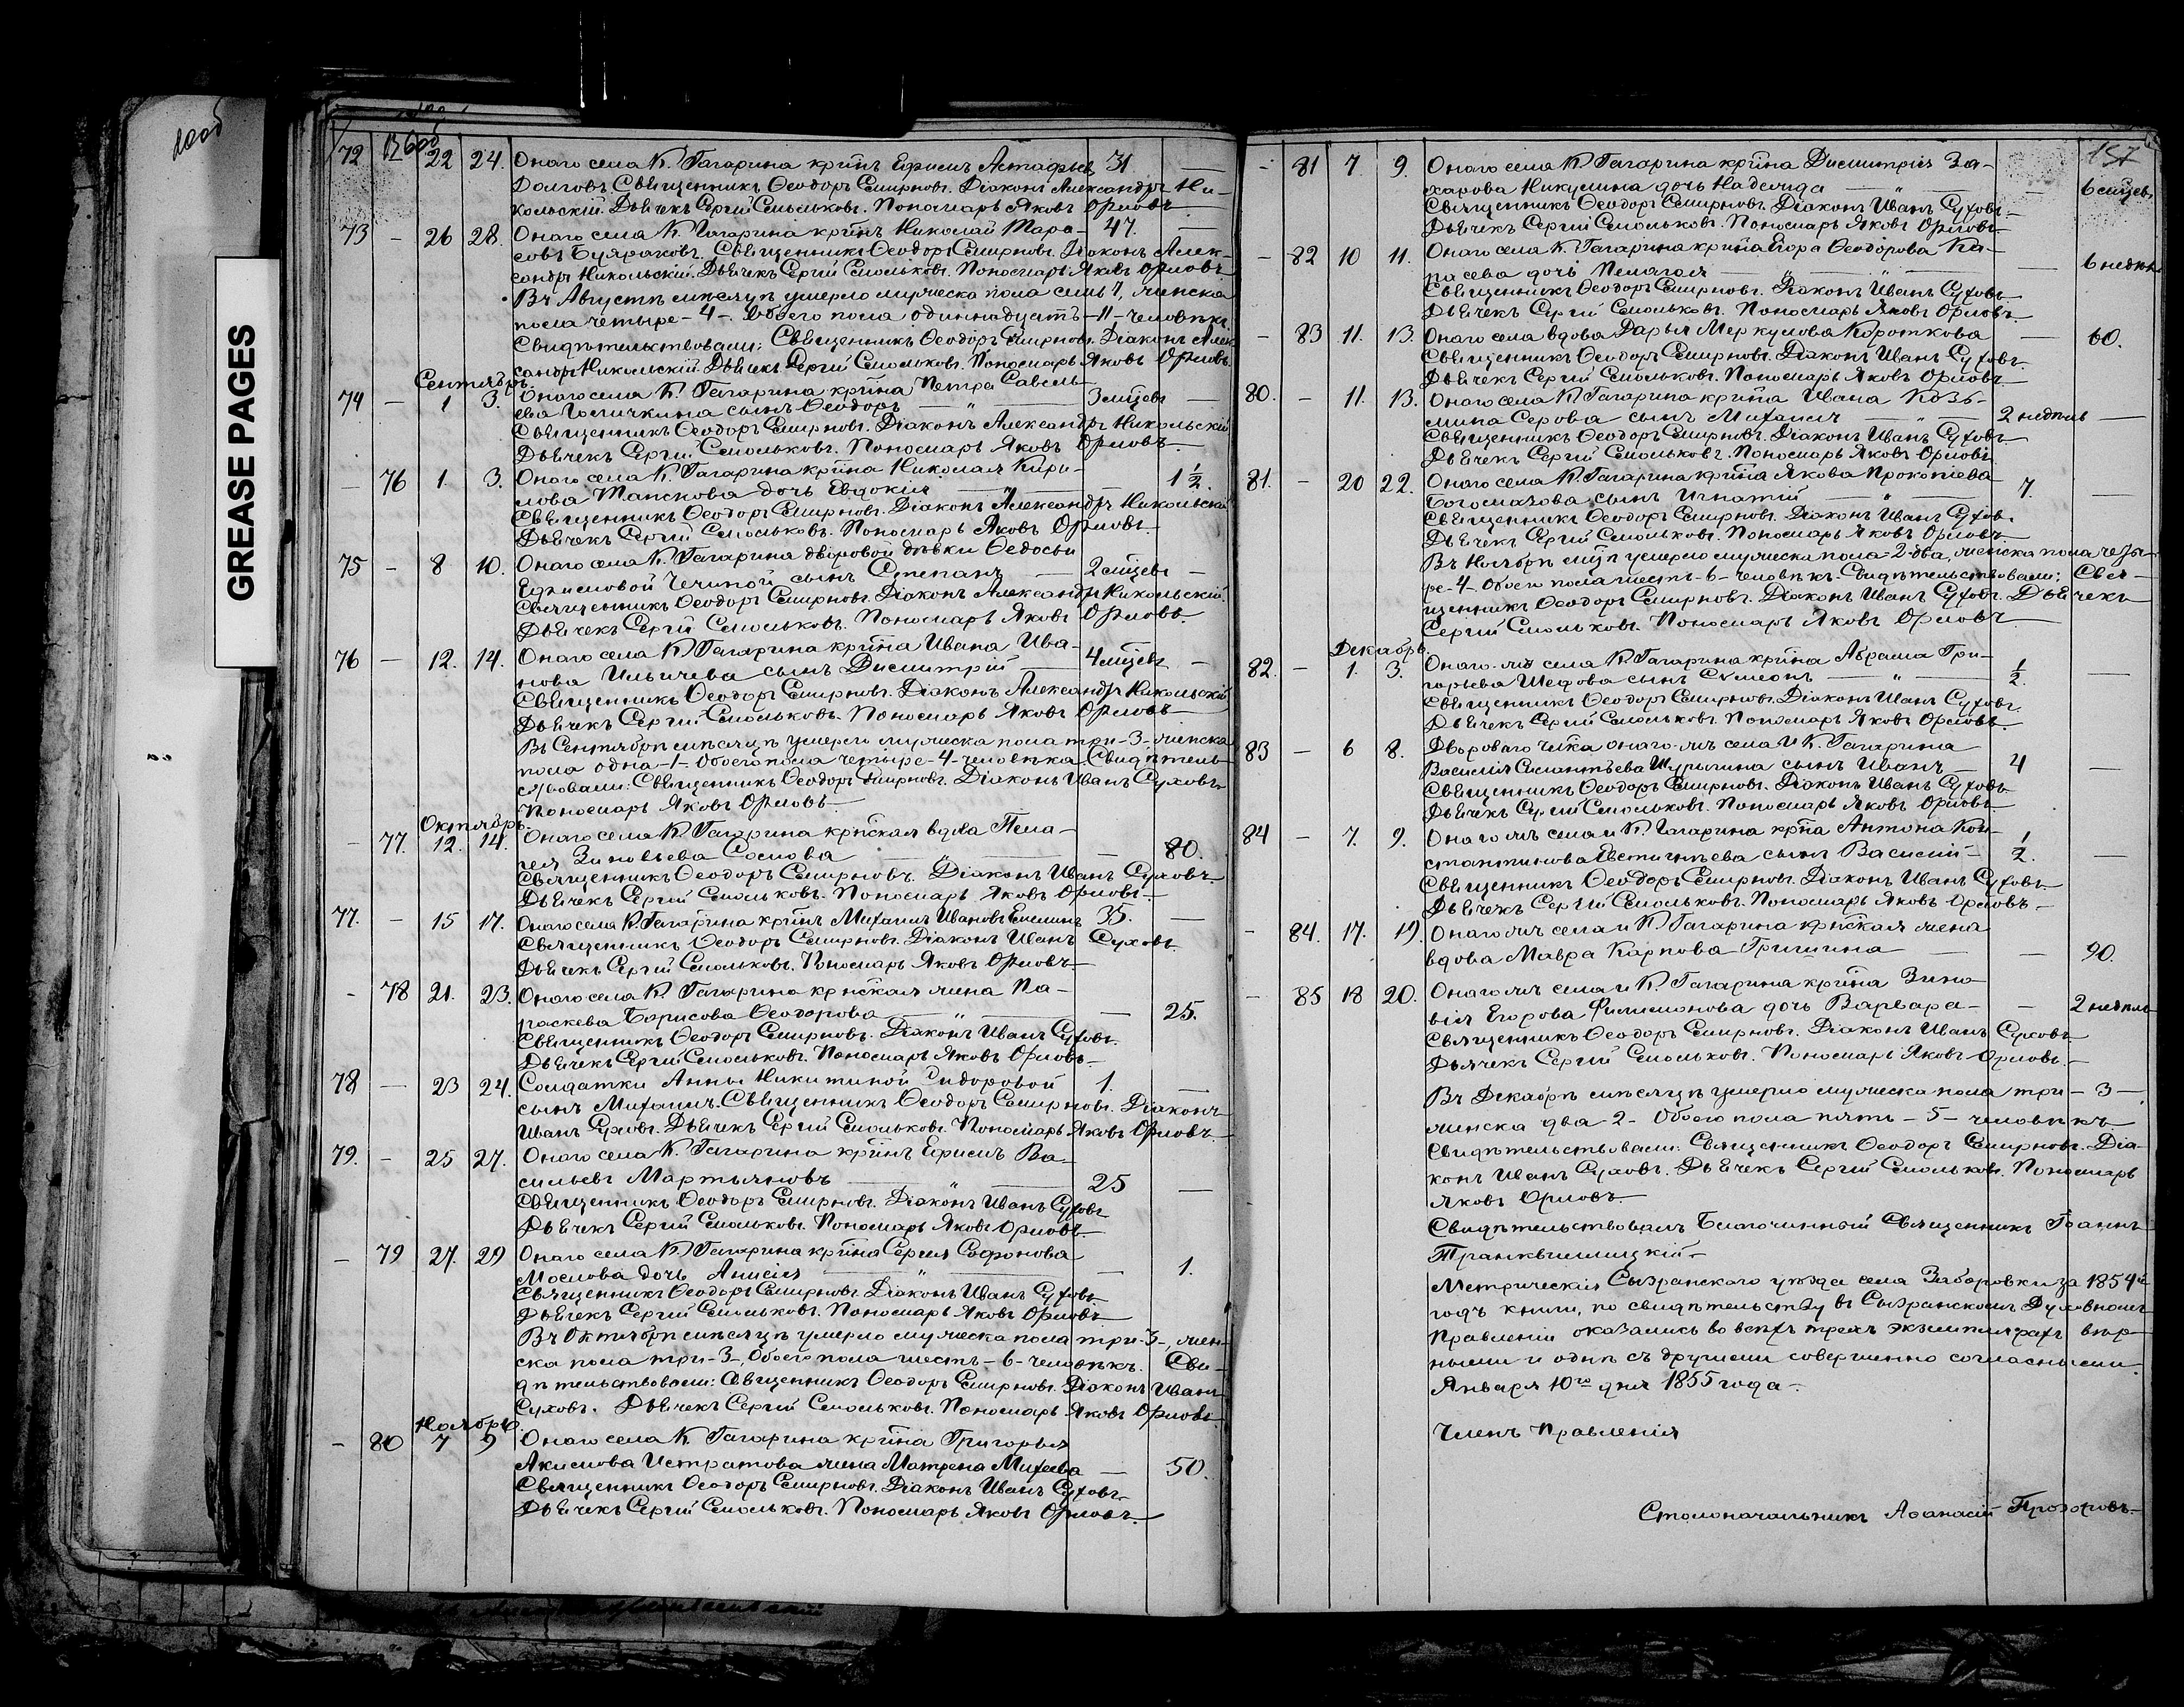 GREASE PAGES
72 22 24. Онаго села К. Гагарина кр͠інъ Ефимъ Астафьев 31 —
Долговъ. Священникъ Ѳеодоръ Смирновъ. Діаконъ Александръ Ни-
кольскій. Дьячекъ Сергій Смольковъ. Пономарь Яковъ Орловъ
73 — 26 28. Онаго села К. Гагарина кр͠інъ Николай Тара- 47. —
совъ Буяраковъ. Священникъ Ѳеодоръ Смирновъ. Діаконъ Алек-
сандръ Никольскій. Дьячекъ Сергій Смольковъ. Пономарь Яковъ Орловъ
Въ Августѣ мѣсяцѣ умерло мужеска пола семь 7, женска
пола четыре - 4 -. Обоего пола одиннадцать - 11 - человѣкъ.
Свидѣтельствовали: Священникъ Ѳеодоръ Смирновъ. Діаконъ Алек
сандръ Никольскій. Дьячекъ Сергій Смольковъ. Пономарь Яковъ Орловъ.
Сентябрь.
74 — 1 3. Онаго села К. Гагарина кр͠іна Петра Савель-
ева сынъ Ѳеодоръ — „ — 3 мѣцевъ —
Священникъ Ѳеодоръ Смирновъ. Діаконъ Александръ Никольскій
Дьячекъ Сергій Смольковъ. Пономарь Яковъ Орловъ.
— 76 1. 3. Онаго села К. Гагарина кр͠іна Николая Кири- — 1 ½.
лова Танскова дочь Евдокія
Священникъ Ѳеодоръ Смирновъ. Діаконъ Александръ Никольскій
Дьячекъ Сергій Смольковъ. Пономарь Яковъ Орловъ.
75 — 8 10. Онаго села К. Гагарина дворовой дѣвки Ѳедосьи
Ефимовой сынъ Степанъ — 2 мѣцевъ —
Священникъ Ѳеодоръ Смирновъ. Діаконъ Александръ Никольскій.
Дьячекъ Сергій Смольковъ. Пономарь Яковъ Орловъ.
76 — 12. 14. Онаго села К. Гагарина кр͠іна Ивана Ива-
нова Ильичева сынъ Димитрій — 4 мѣцевъ —
Священникъ Ѳеодоръ Смирновъ. Діаконъ Александръ Никольскій
Дьячекъ Сергій Смольковъ. Пономарь Яковъ Орловъ
Въ Сентябрѣ мѣсяцѣ умерло мужеска пола три - 3 - женска
пола одна - 1 - Обоего пола четыре - 4 - человѣка. Свидѣтель-
ствовали: Священникъ Ѳеодоръ Смирновъ. Діаконъ Иванъ Суховъ
Пономарь Яковъ Орловъ.
Октябрь.
— 77. 12. 14. Онаго села К. Гагарина кр͠нская вдова Пела-
гея Зиновьева Сомова — „ — 80.
Священникъ Ѳеодоръ Смирновъ. Діаконъ Иванъ Суховъ.
Дьячекъ Сергій Смольковъ. Пономарь Яковъ Орловъ.
77. — 15 17. Онаго села К. Гагарина кр͠інъ Михаилъ Ивановъ Емелинъ 35. —
Священникъ Ѳеодоръ Смирновъ. Діаконъ Иванъ Суховъ
Дьячекъ Сергій Смольковъ. Пономарь Яковъ Орловъ.
— 78 21. 23. Онаго села К. Гагарина кр͠нская жена Па-
раскева Борисова Ѳеодорова — „ — 25.
Священникъ Ѳеодоръ Смирновъ. Діаконъ Иванъ Суховъ.
Дьячекъ Сергій Смольковъ. Пономарь Яковъ Орловъ.
78 — 23 24. Солдатки Анны Никитиной Сидоровой 1. —
сынъ Михаилъ. Священникъ Ѳеодоръ Смирновъ. Діаконъ
Иванъ Суховъ. Дьячекъ Сергій Смольковъ. Пономарь Яковъ Орловъ.
79. — 25 27. Онаго села К. Гагарина кр͠інъ Ефимъ Ва-
сильевъ Мартьяновъ — „ — 25 —
Священникъ Ѳеодоръ Смирновъ. Діаконъ Иванъ Суховъ
Дьячекъ Сергій Смольковъ. Пономарь Яковъ Орловъ.
— 79 27. 29 Онаго села К. Гагарина кр͠іна Сергея Софонова
Мослова дочь Анисія — „ — 1.
Священникъ Ѳеодоръ Смирновъ. Діаконъ Иванъ Суховъ
Дьячекъ Сергій Смольковъ. Пономарь Яковъ Орловъ.
Въ Октябрѣ мѣсяцѣ умерло мужеска пола три - 3 -, жен-
ска пола три - 3 -, Обоего пола шесть - 6 - человѣкъ. Сви-
дѣтельствовали: Священникъ Ѳеодоръ Смирновъ. Діаконъ Иванъ
Суховъ. Дьячекъ Сергій Смольковъ. Пономарь Яковъ Орловъ
Ноябрь.
— 80 7 9 Онаго села К. Гагарина кр͠іна Григорья
Акимова Истратова жена Матрена Михеева — 50.
Священникъ Ѳеодоръ Смирновъ. Діаконъ Иванъ Суховъ
Дьячекъ Сергій Смольковъ. Пономарь Яковъ Орловъ.
157
— 81 7 9. Онаго села К. Гагарина кр͠іна Димитрія За-
харова Никулина дочь Надежда — „ — 6 мѣцевъ
Священникъ Ѳеодоръ Смирновъ. Діаконъ Иванъ Суховъ
Дьячекъ Сергій Смольковъ. Пономарь Яковъ Орловъ
— 82 10 11. Онаго села К. Гагарина кр͠іна Егора Ѳеодорова Ка-
расева дочь Пелагея — „ — 6 недѣль
Священникъ Ѳеодоръ Смирновъ. Діаконъ Иванъ Суховъ
Дьячекъ Сергій Смольковъ. Пономарь Яковъ Орловъ.
— 83 11. 13. Онаго села вдова Дарья Меркулова Короткова — 60.
Священникъ Ѳеодоръ Смирновъ. Діаконъ Иванъ Суховъ.
Дьячекъ Сергій Смольковъ. Пономарь Яковъ Орловъ.
80. — 11. 13. Онаго села К. Гагарина кр͠іна Ивана Козь-
мина Серова сынъ Михаилъ — „ — 2 недѣль —
Священникъ Ѳеодоръ Смирновъ. Діаконъ Иванъ Суховъ
Дьячекъ Сергій Смольковъ. Пономарь Яковъ Орловъ
81. — 20 22. Онаго села К. Гагарина кр͠іна Якова Прокопіева
Богомазова сынъ Игнатій — „ — 7. —
Священникъ Ѳеодоръ Смирновъ. Діаконъ Иванъ Суховъ.
Дьячекъ Сергій Смольковъ. Пономарь Яковъ Орловъ.
Въ Ноябрѣ мцѣ умерло мужеска пола - 2 - два, женска пола четы-
ре - 4 - Обоего пола шесть - 6 - человѣкъ. Свидѣтельствовали: Свя-
щенникъ Ѳеодоръ Смирновъ. Діаконъ Иванъ Суховъ. Дьячекъ
Сергій Смольковъ. Пономарь Яковъ Орловъ
Декабрь.
82. — 1. 3. Онаго жъ села К. Гагарина кр͠іна Абрама Гри-
горьева сынъ Симеонъ — „ — ½. —
Священникъ Ѳеодоръ Смирновъ. Діаконъ Иванъ Суховъ.
Дьячекъ Сергій Смольковъ. Пономарь Яковъ Орловъ.
83 — 6 8. Двороваго чл͠ка онаго жъ села и К. Гагарина
Василія Силантьева Шурыгина сынъ Иванъ — 4 —
Священникъ Ѳеодоръ Смирновъ. Діаконъ Иванъ Суховъ
Дьячекъ Сергій Смольковъ. Пономарь Яковъ Орловъ
84 — 7. 9. Онаго жъ села и К. Гагарина кр͠іна Антона Кон-
стантинова Евстигнѣева сынъ Василій — ½. —
Священникъ Ѳеодоръ Смирновъ. Діаконъ Иванъ Суховъ.
Дьячекъ Сергій Смольковъ. Пономарь Яковъ Орловъ. —
— 84. 17. 19. Онаго жъ села и К. Гагарина кр͠нская жена
вдова Мавра Карпова Гришина — 90.
— 85 18 20. Онаго жъ села и К. Гагарина кр͠іна Зино-
вія Егорова Филимонова дочь Варвара — 2 недѣль
Священникъ Ѳеодоръ Смирновъ. Діаконъ Иванъ Суховъ
Дьячекъ Сергій Смольковъ. Пономарь Яковъ Орловъ. —
Въ Декабрѣ мѣсяцѣ умерло мужеска пола три - 3 -,
женска два 2 - Обоего пола пять - 5 - человѣкъ.
Свидѣтельствовали: Священникъ Ѳеодоръ Смирновъ. Діа-
конъ Иванъ Суховъ. Дьячекъ Сергій Смольковъ. Пономарь
Яковъ Орловъ
Свидѣтельствовалъ Благочинный Священникъ Іоаннъ
Транквиллицкій.
Метрическія Сызранского уѣзда села Заборовки за 1854й
годъ книги, по свидѣтельству въ Сызранскомъ Духовномъ
Правленіи оказались во всѣхъ трехъ экземплярахъ вѣр-
ными и однѣ съ другими совершенно согласными
Января 10го дня 1855 года.
Членъ Правленія
Столоначальникъ Аѳанасій Прозоровъ.